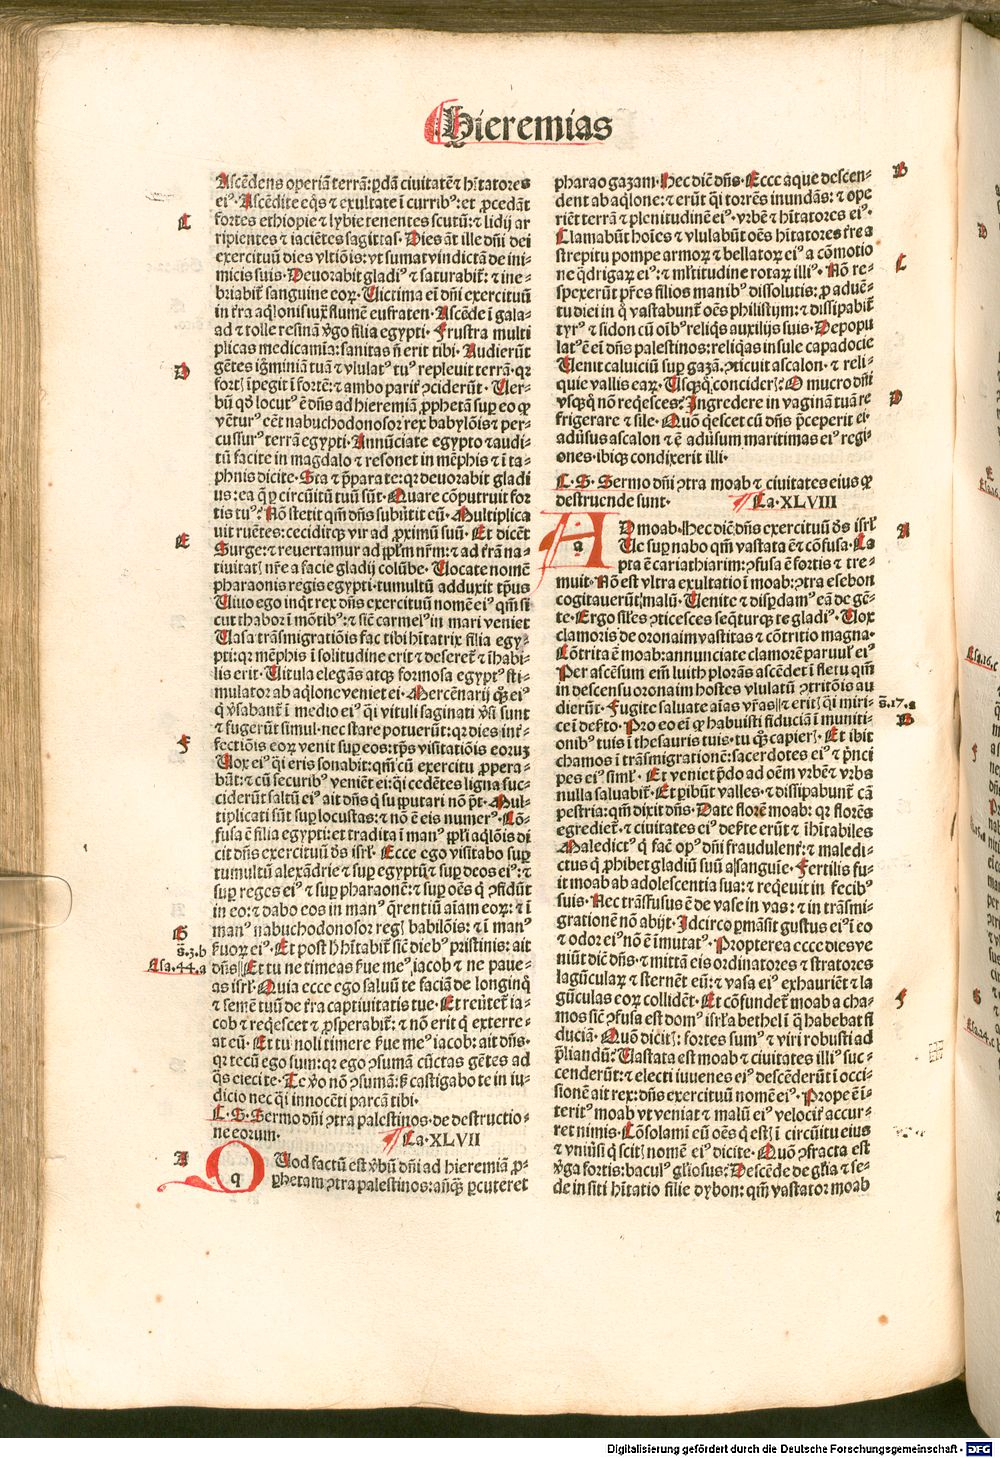 Hieremias
Ascēdens operiā terrā: ꝑdā ciuitatē ⁊ hītatores
eiꝰ. Ascēdite eq̄s ⁊ exultate ī curribꝰ: et ꝓcedāt
fortes ethiopie ⁊ lybie tenentes scutū: ⁊ lidij ar
ripientes ⁊ iaciētes sagittas. Dies āt ille dn̄i dei
exercituū dies vltiōis: vt sumat vindictā de ini-
micis suis. Deuorabit gladiꝰ ⁊ saturabit̄: ⁊ ine-
briabit̄ sanguine eoꝝ. Uictima ei dn̄i exercituū
in t̄ra aq̄lonis iux̄ flumē eufraten. Ascēde ī gala-
ad ⁊ tolle resinā v̄go filia egypti. Frustra multi
plicas medicamīa: sanitas n̄ erit tibi. Audierūt
gētes iḡminiā tuā ⁊ vlulatꝰ tuꝰ repleuit terrā. qꝛ
fort̄ ī̄pegit ī fortē: ⁊ ambo parit̄ ꝯciderūt. Uer-
bū qd̄ locutꝰ ē dn̄s ad hieremiā ꝓphetā suꝑ eo ꝙ
vētur̄ cēt nabuchodonosor rex babylōis ⁊ per-
cussur̄ terrā egypti. Annūciate egypto ⁊ audi-
tū facite in magdalo ⁊ resonet in mēphis ⁊ ī ta-
phnis dicite. Sta ⁊ p̄para te: qꝛ deuorabit gladi
us: ea q̄ ꝑ circūitū tuū sūt. Quare cōputruit for
tis tuꝰ? Nō stetit qm̄ dn̄s subūtit eū. Multiplica
uit ruētes: ceciditqꝫ vir ad ꝓximū suū. Et dicēt
Surge: ⁊ reuertamur ad pp̄lm nr̄m: ⁊ ad t̄rā na-
tiuitat̄ nr̄e a facie gladij colūbe. Uocate nomē
pharaonis regis egypti. tumultū adduxit tp̄us
Uiuo ego inq̄t rex dn̄s exercituū nomē eiꝰ. qm̄ si
cut thabor ī mōtibꝰ: ⁊ sic̄ carmelꝰ in mari veniet
Uasa trāsmigratiōis fac tibi hītatrix filia egy-
pti: qꝛ mēphis ī solitudine erit ⁊ deseret̄ ⁊ īhabi-
lis erit. Uitula elegās atqꝫ formosa egyptꝰ sti-
mulator ab aq̄lone veniet ei. Mercēnarij qꝫ̄ eiꝰ
q̄ v̄sabant̄ ī medio eiꝰ q̄i vituli saginati v̄si sunt
⁊ fugerūt simul. nec stare potuerūt: qꝛ dies int̄-
fectiōis eoꝝ venit suꝑ eos: tp̄s visitatiōis eoruꝫ
Uox eiꝰ q̄i eris sonabit: qm̄ cū exercitu ꝓpera-
būt: ⁊ cū securibꝰ veniēt ei: q̄i cedētes ligna suc-
ciderūt saltū eiꝰ ait dn̄s q̄ supputari nō p̄t. Mul-
tiplicati sūt suꝑ locustas: ⁊ nō ē eis numerꝰ. Cō-
fusa ē filia egypti: et tradita ī manꝰ pp̄li aq̄lōis di
cit dn̄s exercituū ds̄ isrl̄. Ecce ego visitabo suꝑ
tumultū alexādrie ⁊ suꝑ egyptū ⁊ suꝑ deos eiꝰ: ⁊
suꝑ reges eiꝰ ⁊ suꝑ pharaonē: ⁊ suꝑ oēs q̄ ꝯfidūt
in eo: ⁊ dabo eos in manꝰ q̄rentiū aīam eoꝝ: ⁊ ī
manꝰ nabuchodonosor reḡ babilōis: ⁊ ī manꝰ
s̄uoꝝ eiꝰ. Et post h̄ hītabit̄ sic̄ diebꝰ pristinis: ait
dn̄s || Et tu ne timeas s̄ue meꝰ iacob ⁊ ne paue-
as isrl̄. Quia ecce ego saluū te faciā de longinq̄
⁊ semē tuū de t̄ra captiuitatis tue. Et reūtet̄ ia-
cob ⁊ req̄escet ⁊ ꝓsperabit̄: ⁊ nō erit q̄ exterre-
at eū. Et tu noli timere s̄ue meꝰ iacob: ait dn̄s.
qꝛ tecū ego sum: qꝛ ego ꝯsumā cūctas gētes ad
q̄s eieci te. Te v̄o nō ꝯsumā: sꝫ castigabo te in iu-
dicio nec q̄i innocēti parcā tibi.
C. S. Sermo dn̄i ꝯtra palestinos. de destructio-
ne eorum. Ca. XLVII
QUod factū est v̄bū dn̄i ad hieremiā ꝓ-
phetam ꝯtra palestinos: an̄qꝫ̄ ꝑcuteret
pharao gazam. Hec dic̄ dn̄s. Ecce aque descen-
dent ab aq̄lone: ⁊ erūt q̄i torrēs inundās: ⁊ ope
riēt terrā ⁊ plenitudinē eiꝰ. vrbē ⁊ hītatores eiꝰ.
Clamabūt hoīes ⁊ vlulabūt oēs hītatores t̄re a
strepitu pompe armoꝝ ⁊ bellatoꝝ eiꝰ a cōmotio
ne q̄drigaꝝ eiꝰ: ⁊ ml̄titudine rotaꝝ illiꝰ. Nō re-
spexerūt pr̄es filios manibꝰ dissolutis: ꝓ aduē-
tu diei in q̄ vastabunt̄ oēs philistijm: ⁊ dissipabit̄
tyrꝰ ⁊ sidon cū oībꝰ reliq̄s auxilijs suis. Depopu
latꝰ ē ei dn̄s palestinos: reliq̄as insule capadocie
Uenit caluiciū suꝑ gazā. ꝯticuit ascalon. ⁊ reli-
quie vallis eaꝝ. Usqꝫq̄ concider̄? O mucro dn̄i
vsqꝫq̄ nō req̄esces? Ingredere in vaginā tuā re
frigerare ⁊ sile. Quō q̄escet cū dn̄s p̄ceperit ei.
adūsus ascalon ⁊ ē adūsum maritimas eiꝰ regi
ones. ibiqꝫ condixerit illi.
C. S. Sermo dn̄i ꝯtra moab ⁊ ciuitates eius ꝙ
destruende sunt. Ca. XLVIII
AD moab. Hec dic̄ dn̄s exercituū ds̄ isrl̄
Ue suꝑ nabo qm̄ vastata ē ⁊ cōfusa. Ca
pta ē cariathiarim: ꝯfusa ē fortis ⁊ tre-
muit. Nō est vltra exultatio ī moab: ꝯtra esebon
cogitauerūt malū. Uenite ⁊ disꝑdamꝰ eā de gē-
te. Ergo sil̄es ꝯticesces seq̄turqꝫ te gladiꝰ. Uox
clamoris de oronaim vastitas ⁊ cōtritio magna.
Cōtrita ē moab: annunciate clamorē paruul̄ eiꝰ
Per ascēsum em̄ luith plorās ascēdet ī fletu qm̄
in descensu oronaim hostes vlulatū ꝯtritōis au
dierūt. Fugite saluate aīas vr̄as || ⁊ erit̄ q̄i miri-
ce ī des̄to. Pro eo ei ꝙ habuisti fiduciā ī muniti-
onibꝰ tuis ī thesauris tuis. tu qꝫ̄ capier̄. Et ibit
chamos ī trāsmigrationē: sacerdotes eiꝰ ⁊ p̄nci
pes eiꝰ siml̄. Et veniet p̄do ad oēm vrbē ⁊ vrbs
nulla saluabit̄. Et ꝑibūt valles. ⁊ dissipabunt̄ cā
pestria: qm̄ dixit dn̄s. Date florē moab: qꝛ florēs
egrediet̄. ⁊ ciuitates eiꝰ des̄te erūt ⁊ īhītabiles
Maledictꝰ q̄ fac̄ opꝰ dn̄i fraudulent̄: ⁊ maledi-
ctus q̄ ꝓhibet gladiū suū a sanguīe. Fertilis fu-
it moab ab adolescentia sua: ⁊ req̄euit in fecibꝰ
suis. Nec trāsfusus ē de vase in vas: ⁊ in trāsmi-
grationē nō abijt. Idcirco ꝑmāsit gustus eiꝰ ī eo
⁊ odor eiꝰ nō ē īmutatꝰ. Propterea ecce dies ve
niūt dic̄ dn̄s. ⁊ mittā eis ordinatores ⁊ stratores
lagūculaꝝ ⁊ sternēt eū: ⁊ vasa eiꝰ exhauriēt ⁊ la
gūculas eoꝝ collidēt. Et cōfundet̄ moab a cha-
mos sic̄ ꝯfusa est domꝰ isrl̄ a bethel ī q̄ habebat fi
duciā. Quō dicit̄: fortes sumꝰ ⁊ viri robusti ad
p̄liandū? Uastata est moab ⁊ ciuitates illiꝰ suc-
cenderūt: ⁊ electi iuuenes eiꝰ descēderūt ī occi-
sionē ait rex: dn̄s exercituū nomē eiꝰ. Prope ē ī-
teritꝰ moab vt veniat ⁊ malū eiꝰ velocit̄ accur-
ret nimis. Cōsolami eū oēs q̄ est̄ ī circūitu eius
⁊ vniūsi q̄ scit̄ nomē eiꝰ dicite. Quō ꝯfracta est
v̄ga fortis: baculꝰ gl̄iosus? Descēde de gl̄ia ⁊ se-
de in siti hītatio filie dybon: qm̄ vastator moab
C
D
E
F
G
s̄.3.b
Isa.44.a
A
B
C
D
A
s̄.17.a
B
F
Digitalisierung gefördert durch die Deutsche Forschungsgemeinschaft - DFG